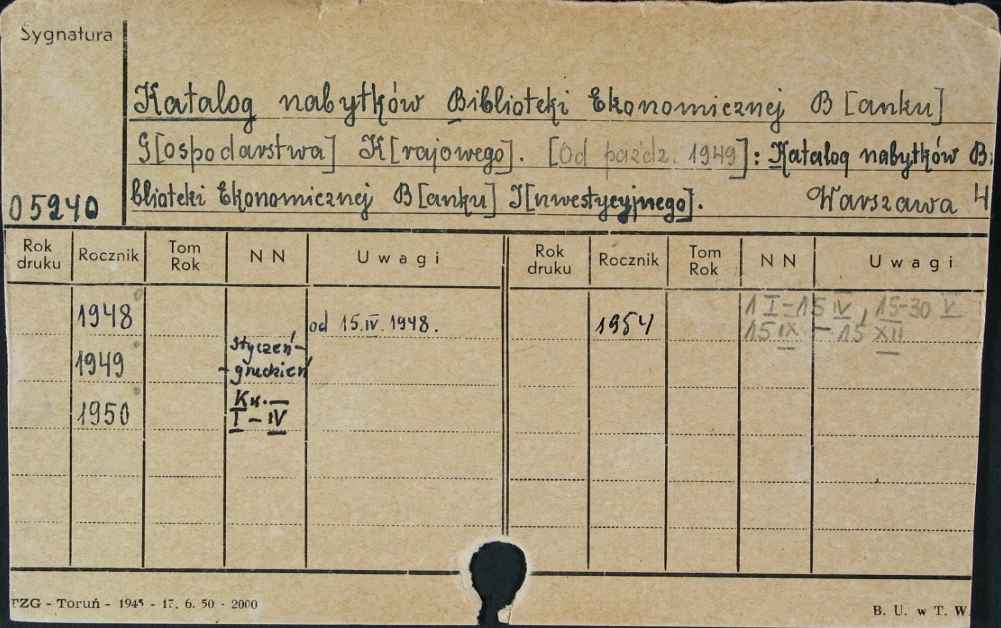 Sygnatura
Katalog nabytków Biblioteki Ekonomicznej B[anku]
G[ospodarstwa] K[rajowego]. [Od paźdz. 1949]: Katalog nabytków Bi
05240 blioteki Ekonomicznej B[anku] I[nwestycyjnego]. Warszawa 4
Rok druku Rocznik Tom Rok NN Uwagi Rok druku Rocznik Tom Rok NN Uwagi
1948 od 15.IV.1948. 1954 1 I-15 IV, 15-30 V
15 IX - 15 XII
1949 styczeń-
-grudzień
1950 Kw.
I - IV
PZG - Toruń - 1945 - 17. 6. 50 - 2000 B. U. w T. W